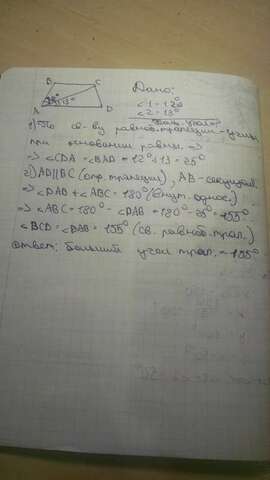 B C
A D
Дано:
∠1 = 12°
∠2 = 13°
1) По св-ву равноб. трапеции - углы
при основании равны, =>
=> ∠CDA = ∠BAD = 12° + 13 = 25°
2) AD||BC (опр. трапеции), AB - секущая
=> ∠DAB + ∠ABC = 180° (внут. однос.)
=> ∠ABC = 180° - ∠DAB = 180° - 25° = 155°
∠BCD = ∠DAB = 155° (св. равноб. трап.)
Ответ: больший угол трап. = 155